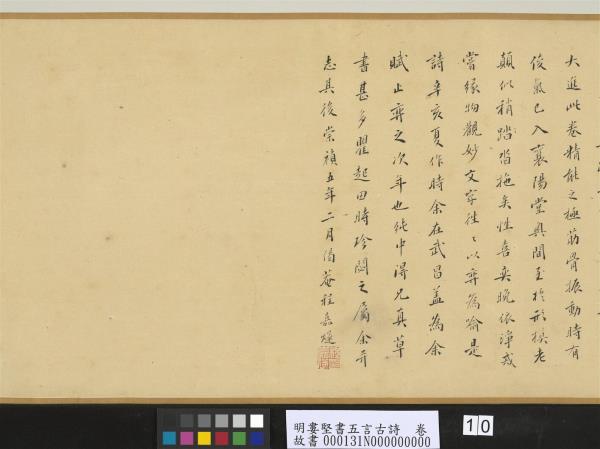 大進此卷精能之極筋骨振動時有
俊氣已入襄陽堂奧間至於形模老
顛似稍踏沓拖矣性喜奕晚依淨戒
嘗緣物觀妙文字往〻以弈為喻是
詩辛亥夏作時余在武昌蓋為余
賦止弈之次年也純中得兄真草
書甚多瞿起田時珍閟之屬余并
志其後崇禎五年二月偈菴程嘉燧
明婁堅書五言古詩 卷
故書 000131N000000000
10